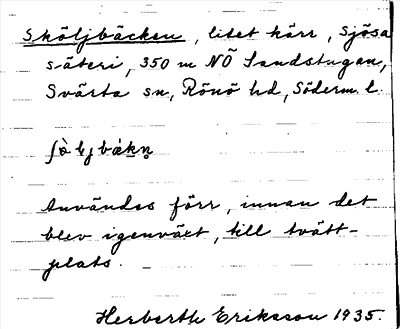 Sköljbäcken, litet kärr, Sjösa
säteri, 350 m NÖ Sandstugan,
Svärta sn, Rönö hd, Söderm. l.
Användes förr, innan det
blev igenväxt, till tvätt-
plats.
Herbert Eriksson 1935.